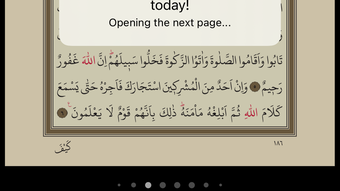 today!
Opening the next page...
تَابُوا وَاَقَامُوا الصَّلٰوةَ وَاٰتَوُا الزَّكٰوةَ فَخَلُّوا سَبٖيلَهُمْ اِنَّ اللّٰهَ غَفُورٌ
رَحٖيمٌ ۝ وَاِنْ اَحَدٌ مِنَ الْمُشْرِكٖينَ اسْتَجَارَكَ فَاَجِرْهُ حَتّٰى يَسْمَعَ
كَلَامَ اللّٰهِ ثُمَّ اَبْلِغْهُ مَأْمَنَهُ ذٰلِكَ بِاَنَّهُمْ قَوْمٌ لَا يَعْلَمُونَ ۝
١٨٦
كَيْفَ